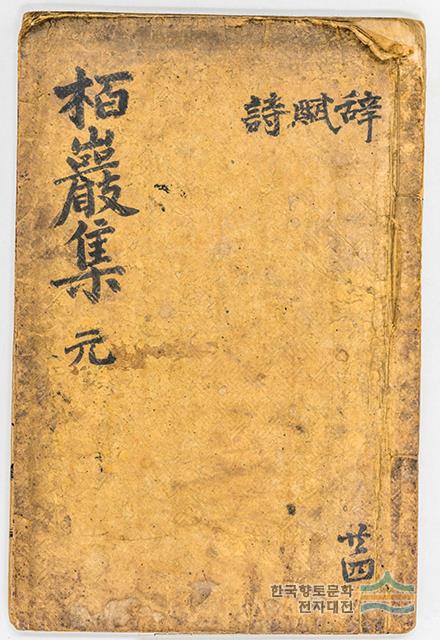 栢巖集 元
辞賦詩
廿四
한국향토문화
전자대전